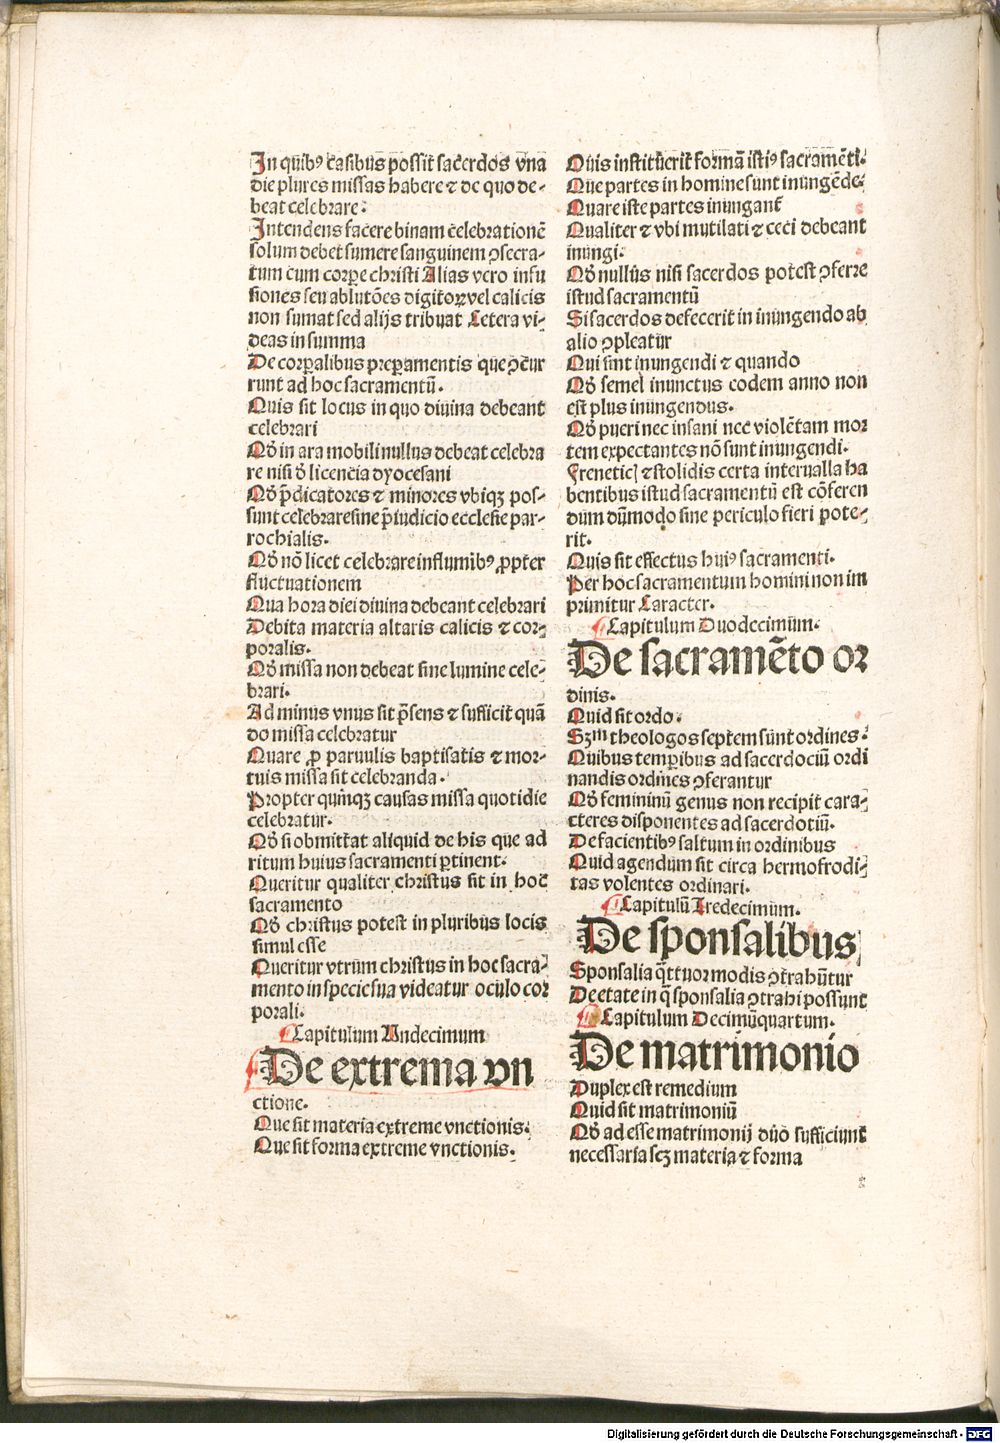 In quibꝰ casibus possit sacerdos vna
die plures missas habere ⁊ de quo de-
beat celebrare.
Intendens facere binam celebrationē
solum debet sumere sanguinem ꝯsecra-
tum cum corpe christi Alias vero infu
siones seu ablutōes digitoꝝ vel calicis
non sumat sed alijs tribuat Cetera vi-
deas in summa
De corꝑalibus preꝑamentis que ꝯcur
runt ad hoc sacramentū.
Quis sit locus in quo diuina debeant
celebrari
Qđ in ara mobili nullus debeat celebra
re nisi đ licencia dyocesani
Qđ p̄dicatores ⁊ minores vbiqꝫ pos-
sunt celebrare sine p̄iudicio ecclesie par-
rochialis.
Qđ nō licet celebrare in flumibꝰ ꝓpter
fluctuationem
Qua hora diei diuina debeant celebrari
Debita materia altaris calicis ⁊ cor-
poralis.
Qđ missa non debeat sine lumine cele-
brari.
Ad minus vnus sit p̄sens ⁊ sufficit quā
do missa celebratur
Quare ꝓ paruulis baptisatis ⁊ mor-
tuis missa sit celebranda.
Propter quinqꝫ causas missa quotidie
celebratur.
Qđ si obmittat aliquid de his que ad
ritum huius sacramenti ꝑtinent.
Queritur qualiter christus sit in hoc
sacramento
Qđ christus potest in pluribus locis
simul esse
Queritur vtrum christus in hoc sacra-
mento in specie sua videatur oculo cor
porali.
Capitulum Undecimum
De extrema vn
ctione.
Que sit materia extreme vnctionis.
Que sit forma extreme vnctionis.
Quis instituerit formā istiꝰ sacramēti.
Que partes in homine sunt inungēde.
Quare iste partes inungant̄
Qualiter ⁊ vbi mutilati ⁊ ceci debeant
inungi.
Qđ nullus nisi sacerdos potest ꝯferre
istud sacramentū
Si sacerdos defecerit in inungendo ab
alio ꝯpleatur
Qui sint inungendi ⁊ quando
Qđ semel inunctus eodem anno non
est plus inungendus.
Qđ pueri nec insani nec violētam mor
tem expectantes nō sunt inungendi.
Freneticꝭ ⁊ stolidis certa interualla ha
bentibus istud sacramentū est cōferen
dum dūmodo sine periculo fieri pote-
rit.
Quis sit effectus huiꝰ sacramenti.
Per hoc sacramentum homini non im
primitur Caracter.
Capitulum Duodecimum.
De sacramēto or
dinis.
Quid sit ordo.
Sꝫm theologos septem sunt ordines.
Quibus temꝑibus ad sacerdociū ordi
nandis ordines ꝯferantur
Qđ femininū genus non recipit cara-
cteres disponentes ad sacerdotiū.
De facientibꝰ saltum in ordinibus
Quid agendum sit circa hermofrodi-
tas volentes ordinari.
Capitulū Tredecimum.
De sponsalibus
Sponsalia q̄ttuor modis ꝯtrahūtur
De etate in q̄ sponsalia ꝯtrahi possunt
Capitulum Decimūquartum.
De matrimonio
Duplex est remedium
Quid sit matrimoniū
Qđ ad esse matrimonij duo sufficiunt
necessaria scꝫ materia ⁊ forma
Digitalisierung gefördert durch die Deutsche Forschungsgemeinschaft - DFG